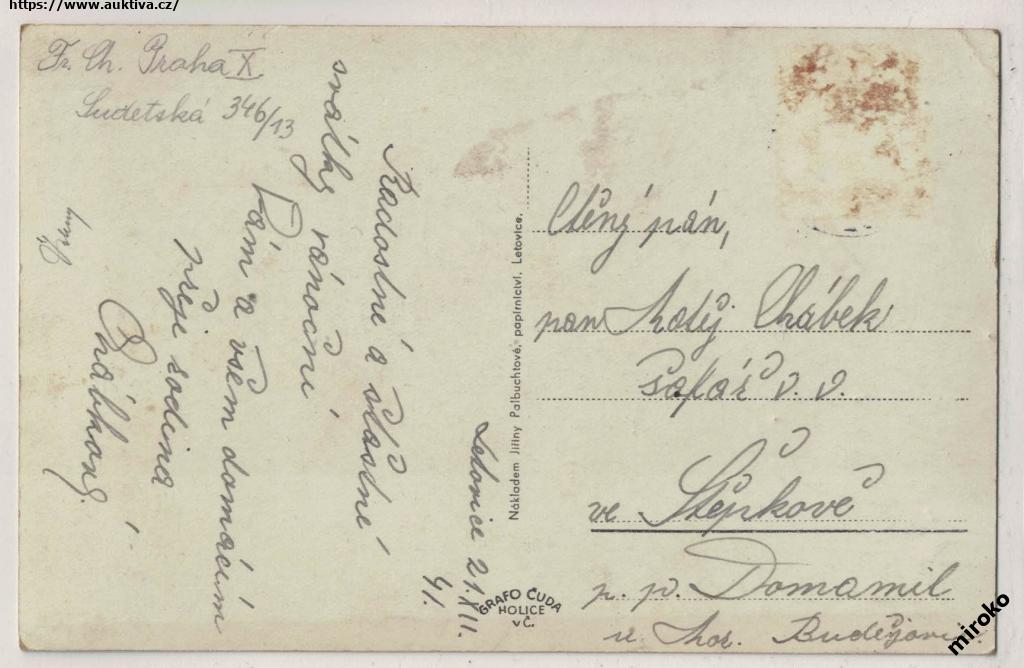 https://www.auktiva.cz/
Fr. Ch. Praha X
Sudetská 346/13
Letovice 21.XII.
41.
Radostné a šťastné
svátky vánoční
Vám a všem domácím
přeje rodina
Chábkova
Nákladem Jiřiny Palbuchtové, papírnictví, Letovice.
GRAFO ČUDA
HOLICE
v Č.
Ctěný pán,
pan Matěj Chábek
šafář v. v.
ve Štěpkově
p. p. Domamil
u Mor. Budějovic
miroko